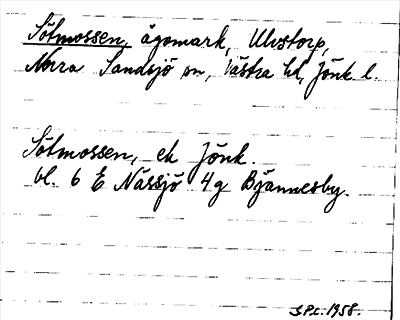 Sötmossen, ägomark, Ulvstorp,
Norra Sandsjö sn, Västra hd, Jönk l.
Sötmossen, ek Jönk.
bl. 6 E Nässjö 4g Bjännesby.
S.Pl. 1958.